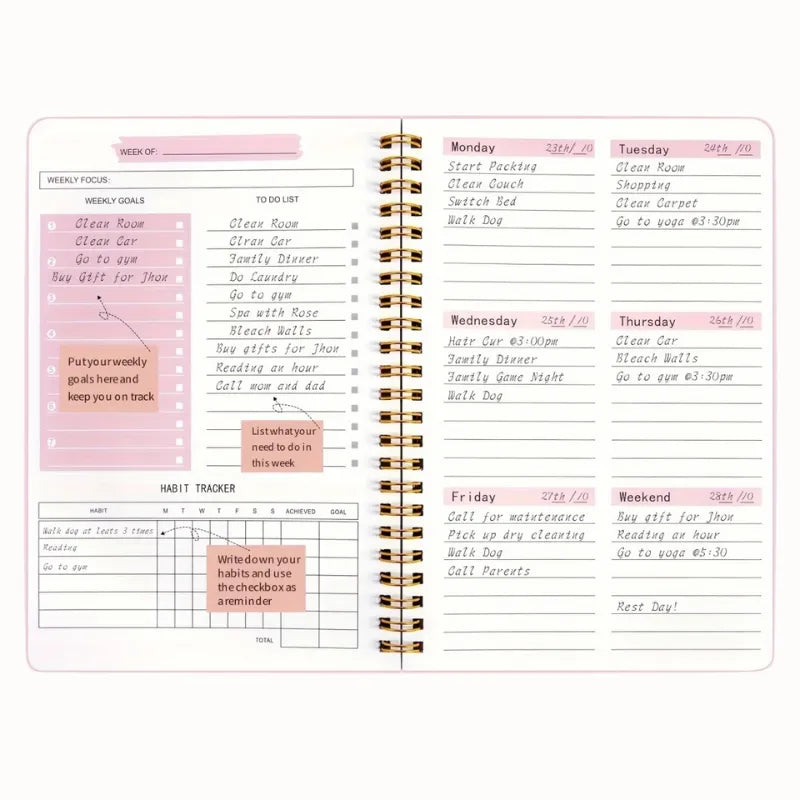 WEEK OF:
WEEKLY FOCUS:
WEEKLY GOALS
1 Clean Room
Clean Car
2 Go to gym
Buy Gift for Jhon
3
4
5
6
7
Put your weekly
goals here and
keep you on track
TO DO LIST
Clean Room
Clran Car
Family Dinner
Do Laundry
Go to gym
Spa with Rose
Bleach Walls
Buy gifts for Jhon
Reading an hour
Call mom and dad
List what your
need to do in
this week
HABIT TRACKER
HABIT M T W T F S S ACHIEVED GOAL
Walk dog at leats 3 times
Reading
Go to gym
Write down your
habits and use
the checkbox as
a reminder
TOTAL
Monday 23th/10
Start Packing
Clean Couch
Switch Bed
Walk Dog
Tuesday 24th/10
Clean Room
Shopping
Clean Carpet
Go to yoga @3:30pm
Wednesday 25th/10
Hair Cur @3:00pm
Family Dinner
Family Game Night
Walk Dog
Thursday 26th/10
Clean Car
Bleach Walls
Go to gym @3:30pm
Friday 27th/10
Call for maintenance
Pick up dry cleaning
Walk Dog
Call Parents
Weekend 28th/10
Buy gift for Jhon
Reading an hour
Go to yoga @5:30
Rest Day!